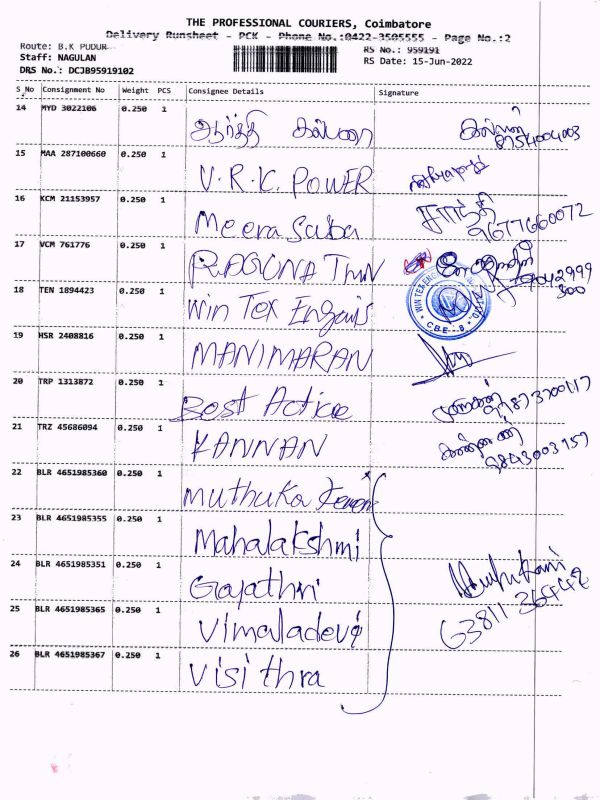 THE PROFESSIONAL COURIERS, Coimbatore
Delivery Runsheet - PCK - Phone No.:0422-3505555 - Page No.:2
Route: B.K PUDUR
RS No.: 959191
Staff: NAGULAN
RS Date: 15-Jun-2022
DRS No.: DCJB95919102
S_No Consignment No Weight PCS Consignee Details Signature
14 MYD 3022106 0.250 1 ஆர்த்தி கல்பனா
15 MAA 287100660 0.250 1 V.R.K. POWER
16 KCM 21153957 0.250 1 Meera Saba சாந்தி 9677660072
17 VCM 761776 0.250 1
18 TEN 1894423 0.250 1 Win Tex
19 HSR 2408816 0.250 1 MANIMARAN
20 TRP 1313872 0.250 1 Best Active
21 TRZ 45686094 0.250 1 KANNAN கண்ணன் 9843003157
22 BLR 4651985360 0.250 1 muthuka
23 BLR 4651985355 0.250 1 Mahalakshmi
24 BLR 4651985351 0.250 1 Gayathri
25 BLR 4651985365 0.250 1 Vimaladevi
26 BLR 4651985367 0.250 1 Visithra